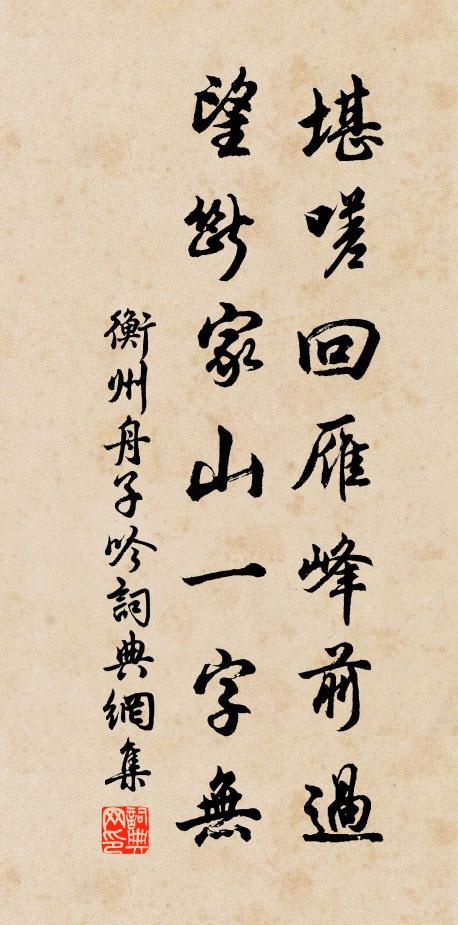 堪嗟回雁峰前過
望斷家山一字無
衡州舟子吟詞典網集
詞典网印